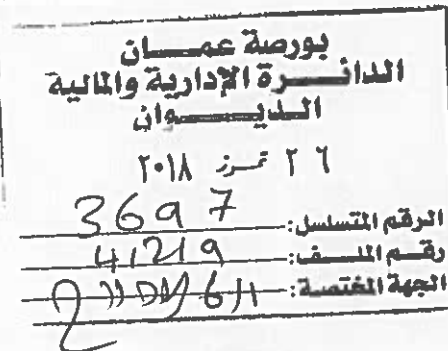 بورصة عمــان
الدائــرة الإدارية والمالية
الديــوان
٢٦ تمــوز ٢٠١٨
الرقم المتسلسل: 3697
رقــم الملــف: 41219
الجهة المختصة: